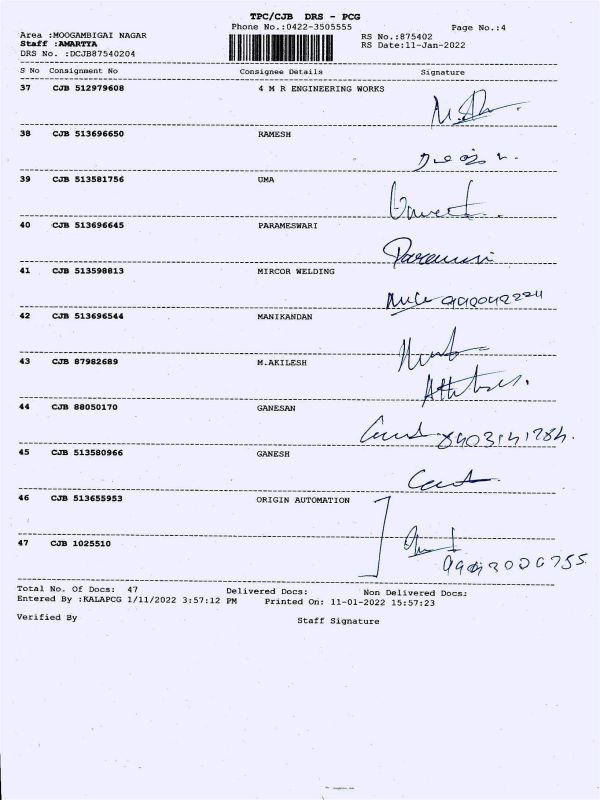 TPC/CJB DRS - PCG
Phone No.:0422-3505555 Page No.:4
Area :MOOGAMBIGAI NAGAR RS No.:875402
Staff :AMARTYA RS Date:11-Jan-2022
DRS No. :DCJB87540204
S No Consignment No Consignee Details Signature
37 CJB 512979608 4 M R ENGINEERING WORKS
38 CJB 513696650 RAMESH
39 CJB 513581756 UMA
40 CJB 513696645 PARAMESWARI
41 CJB 513598813 MIRCOR WELDING
42 CJB 513696544 MANIKANDAN
43 CJB 87982689 M.AKILESH
44 CJB 88050170 GANESAN
45 CJB 513580966 GANESH
46 CJB 513655953 ORIGIN AUTOMATION
47 CJB 1025510
Total No. Of Docs: 47 Delivered Docs: Non Delivered Docs:
Entered By :KALAPCG 1/11/2022 3:57:12 PM Printed On: 11-01-2022 15:57:23
Verified By Staff Signature